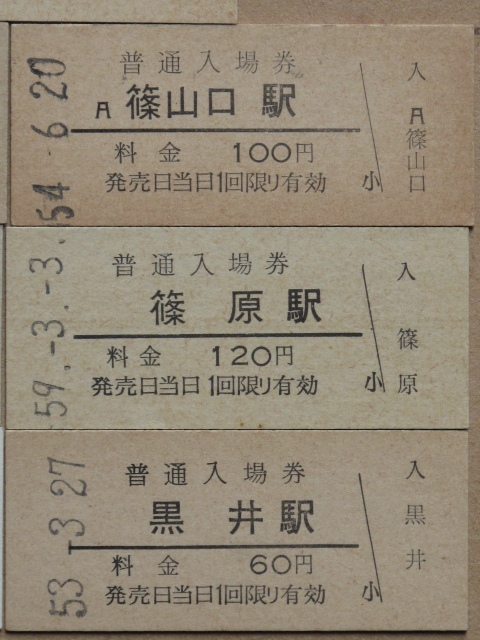 54 6 20
普通入場券
A 篠山口駅
料金 100円
発売日当日1回限り有効
小
入
A篠山口
59.-3.-3.
普通入場券
篠原駅
料金 120円
発売日当日1回限り有効
小
入
篠原
53 3 27
普通入場券
黒井駅
料金 60円
発売日当日1回限り有効
小
入
黒井